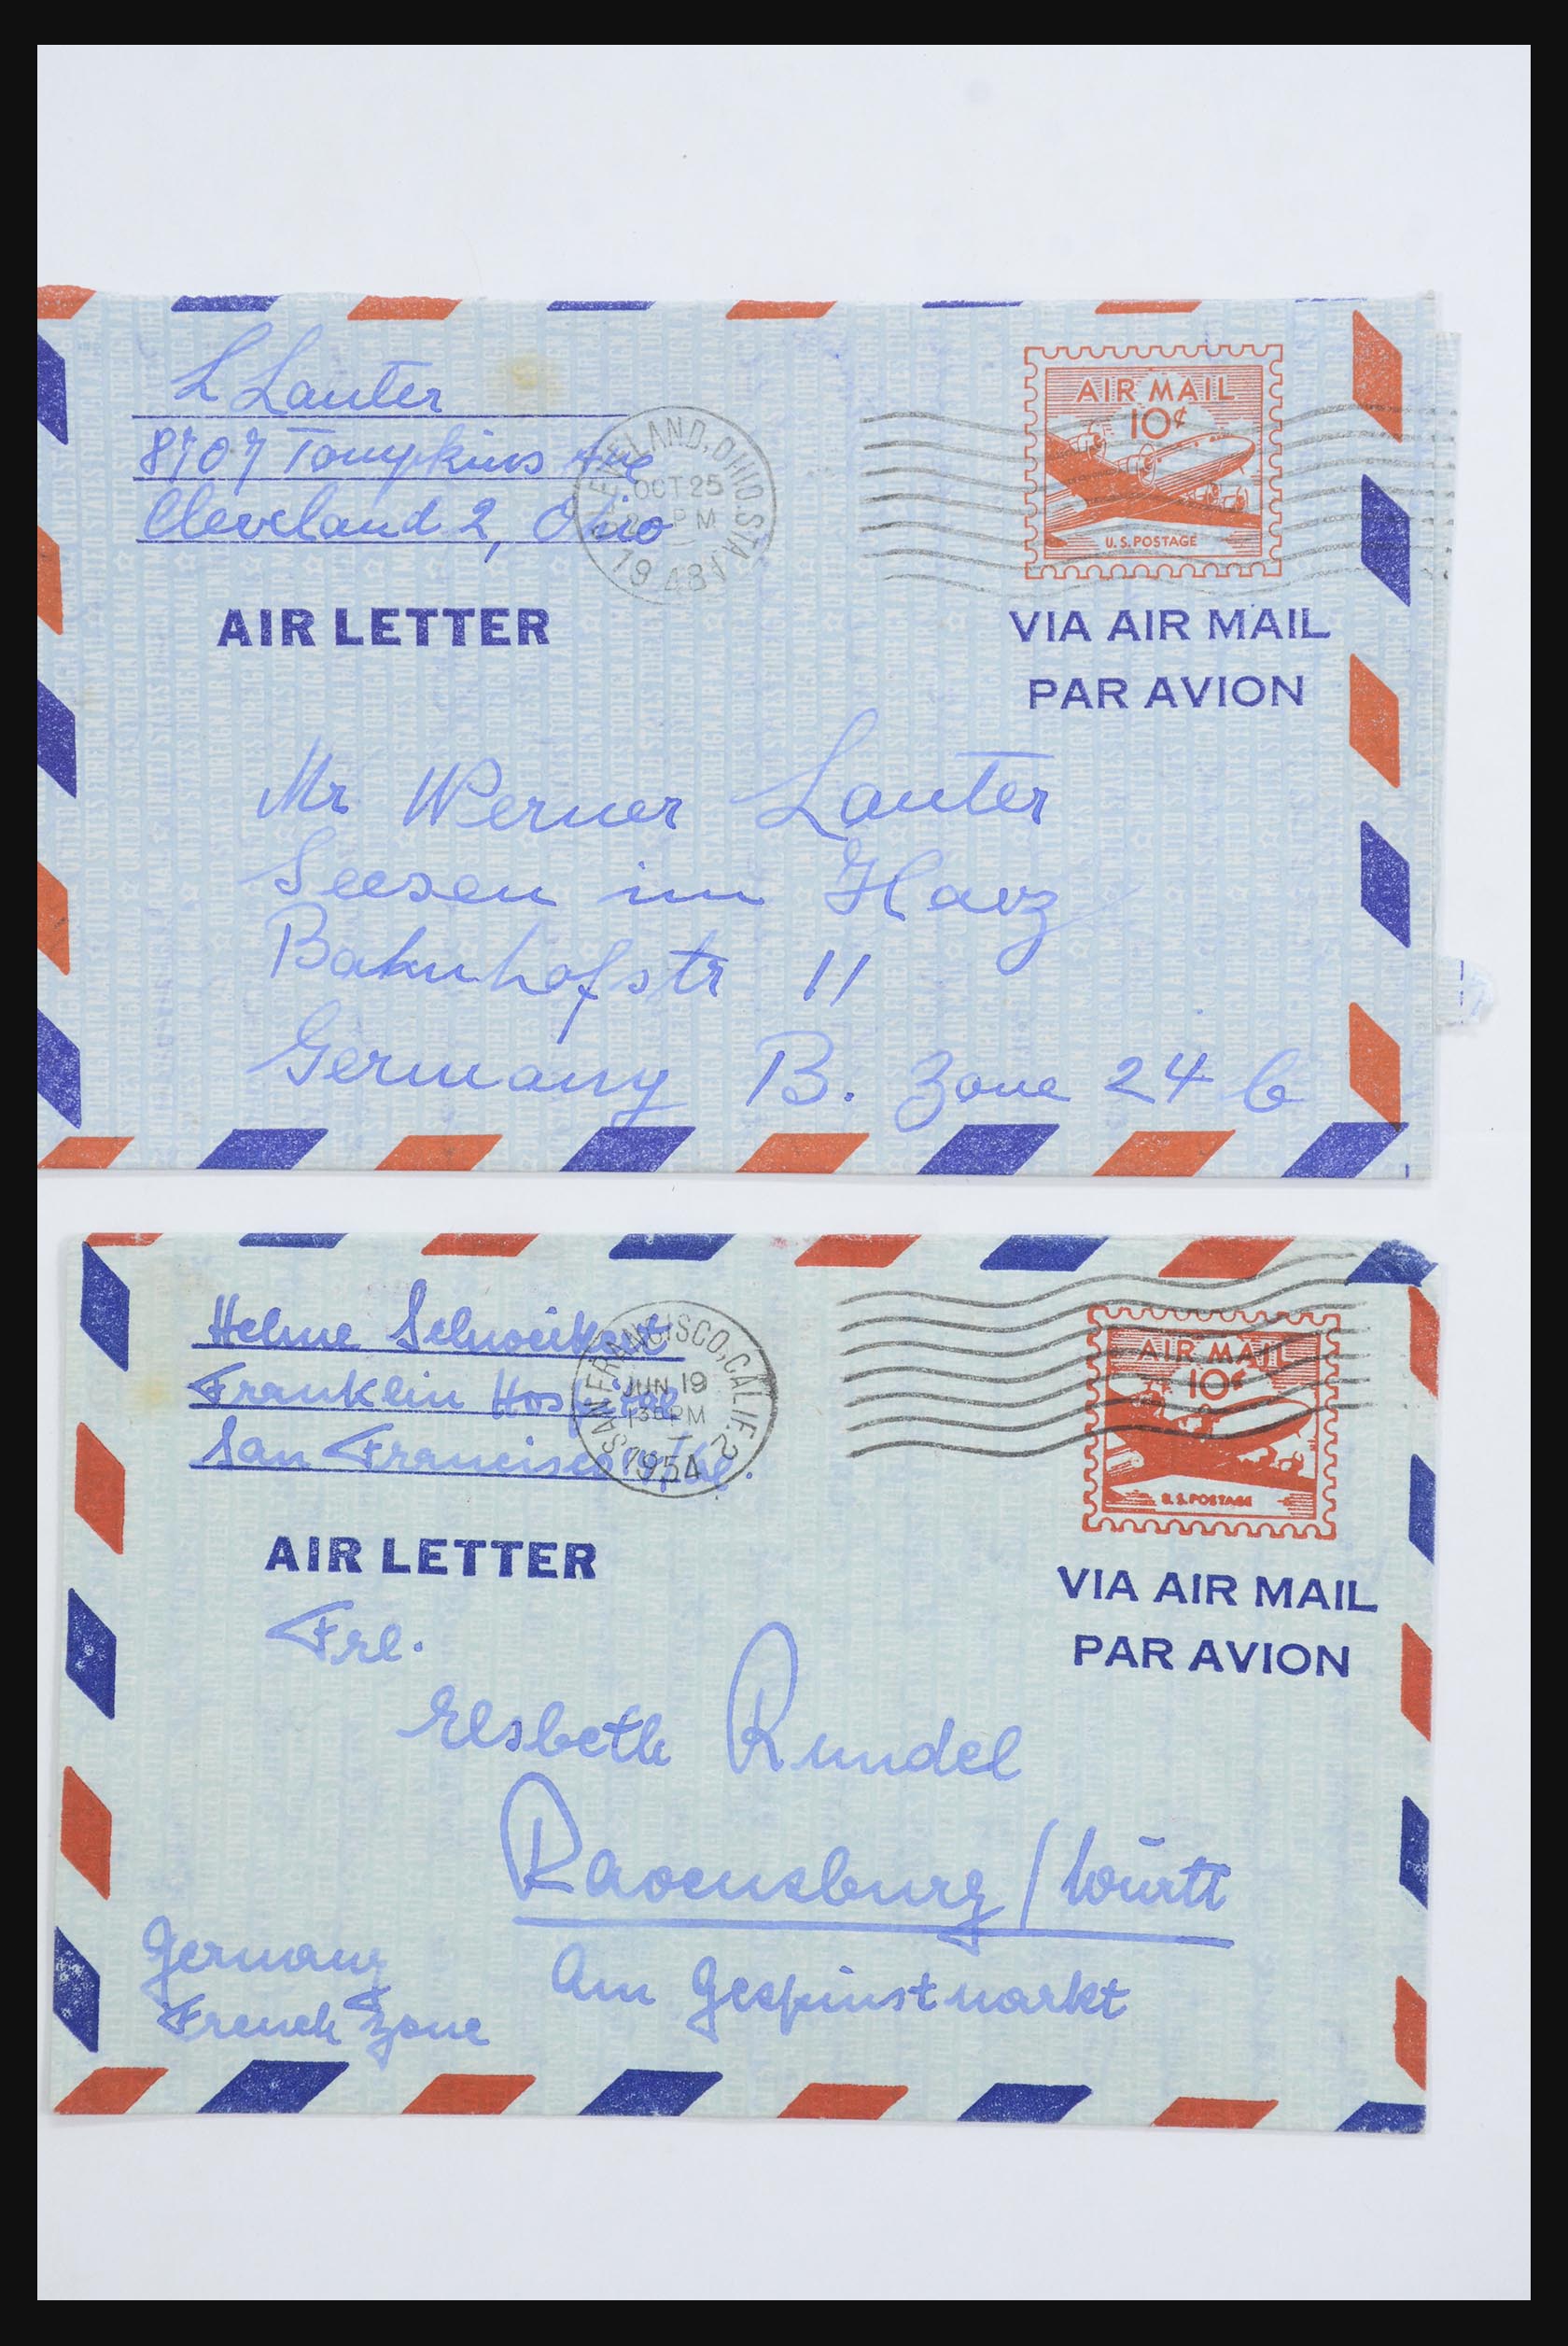 L Lauter
8707 Tompkins Ave
Cleveland 2, Ohio
CLEVELAND, OHIO. STA.
OCT 25
PM
1948
AIR MAIL
10¢
U.S. POSTAGE
AIR LETTER
VIA AIR MAIL
PAR AVION
Mr Werner Lauter
Seesen im Harz
Bahnhofstr 11
Germany B. Zone 24 b
Helme
Franklin Hospital
San Francisco
SAN FRANCISCO, CALIF. 2
JUN 19
130 PM
1954
AIR MAIL
10¢
U.S. POSTAGE
AIR LETTER
VIA AIR MAIL
PAR AVION
Frl.
Elsbeth Rundel
Ravensburg / Württ
Am Gespinstmarkt
Germany
French Zone